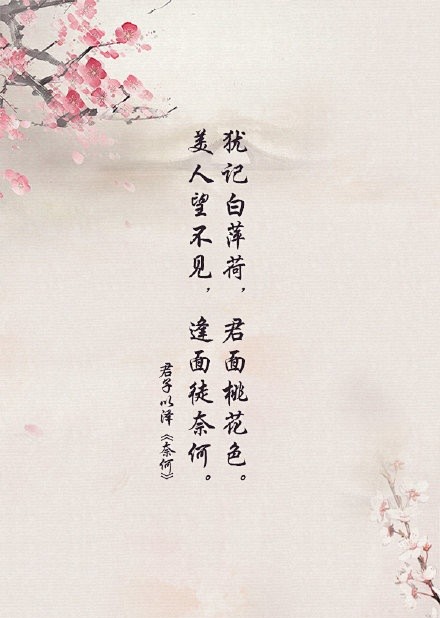 犹记白萍荷，君面桃花色。
美人望不见，逢面徒奈何。
君子以泽《奈何》